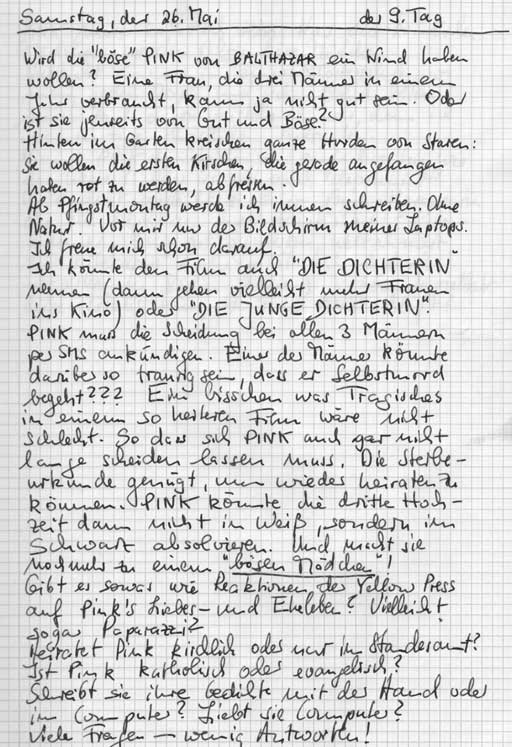 Samstag, der 26. Mai der 9. Tag
Wird die "böse" PINK von BALTHAZAR ein Kind haben
wollen? Eine Frau, die drei Männer in einem
Jahr verbraucht, kann ja nicht gut sein. Oder
ist sie jenseits von Gut und Böse?
Hinten im Garten kreischen ganze Horden von Staren:
Sie wollen die ersten Kirschen, die gerade angefangen
haben rot zu werden, abfressen.
Ab Pfingstmontag werde ich innen schreiben. Ohne
Natur. Vor mir nur der Bildschirm meines Laptops.
Ich freue mich schon darauf.
Ich könnte den Film auch "DIE DICHTERIN"
nennen (dann gehen vielleicht mehr Frauen
ins Kino) oder "DIE JUNGE DICHTERIN".
PINK muss die Scheidung bei allen 3 Männern
per SMS ankündigen. Einer der Männer könnte
darüber so traurig sein, dass er Selbstmord
begeht??? Ein bisschen was Tragisches
in einem so heiteren Film wäre nicht
schlecht. So dass sich PINK auch gar nicht
lange scheiden lassen muss. Die Sterbe-
urkunde genügt, um wieder heiraten zu
können. PINK könnte die dritte Hoch-
zeit dann nicht in Weiß, sondern in
Schwarz absolvieren. Und macht sie
noch mehr zu einem "bösen Mädchen"!
Gibt es sowas wie Reaktionen der Yellow Press
auf Pink's Liebes- und Eheleben? Vielleicht
sogar Paparazzi?
Heiratet Pink kirchlich oder nur im Standesamt?
Ist Pink katholisch oder evangelisch?
Schreibt sie ihre Gedichte mit der Hand oder
im Computer? Liebt sie Computer?
Viele Fragen – wenig Antworten!